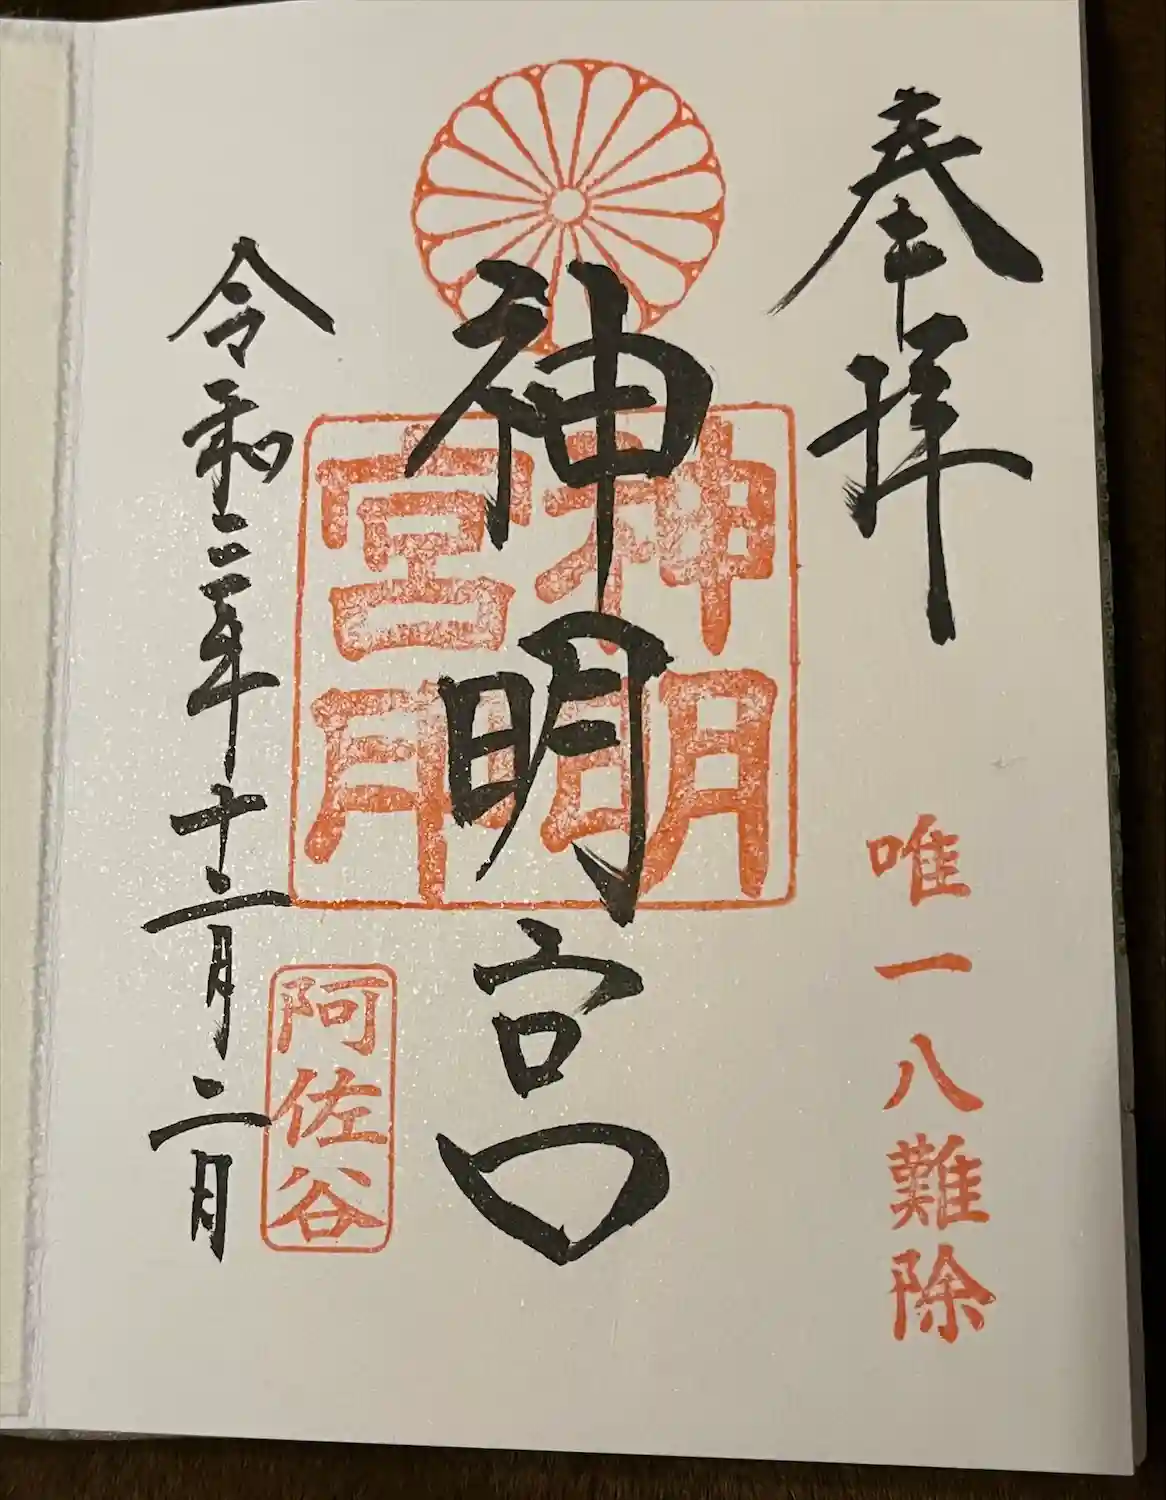 奉拝
唯一八難除
神明宮
神明宮
令和三年十二月二日
阿佐谷